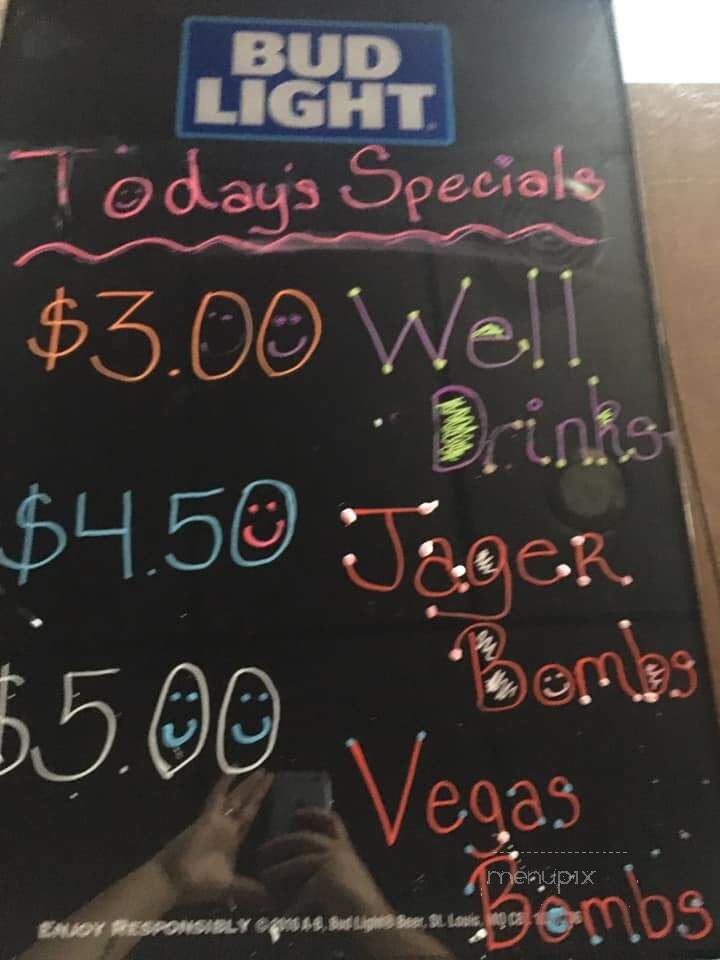 BUD
LIGHT
Today's Specials
$3.00 Well
Drinks
$4.50 Jager
Bombs
$5.00 Vegas
Bombs
menupix
ENJOY RESPONSIBLY © 2016 A-B, Bud Light® Beer, St. Louis, MO